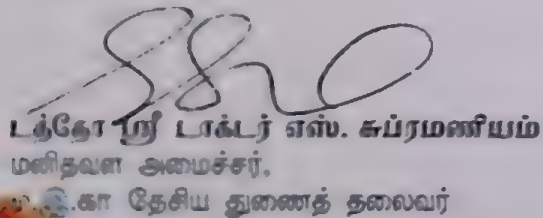 டத்தோ ஸ்ரீ டாக்டர் எஸ். சுப்ரமணியம்
மனிதவள அமைச்சர்,
ம.இ.கா தேசிய துணைத் தலைவர்